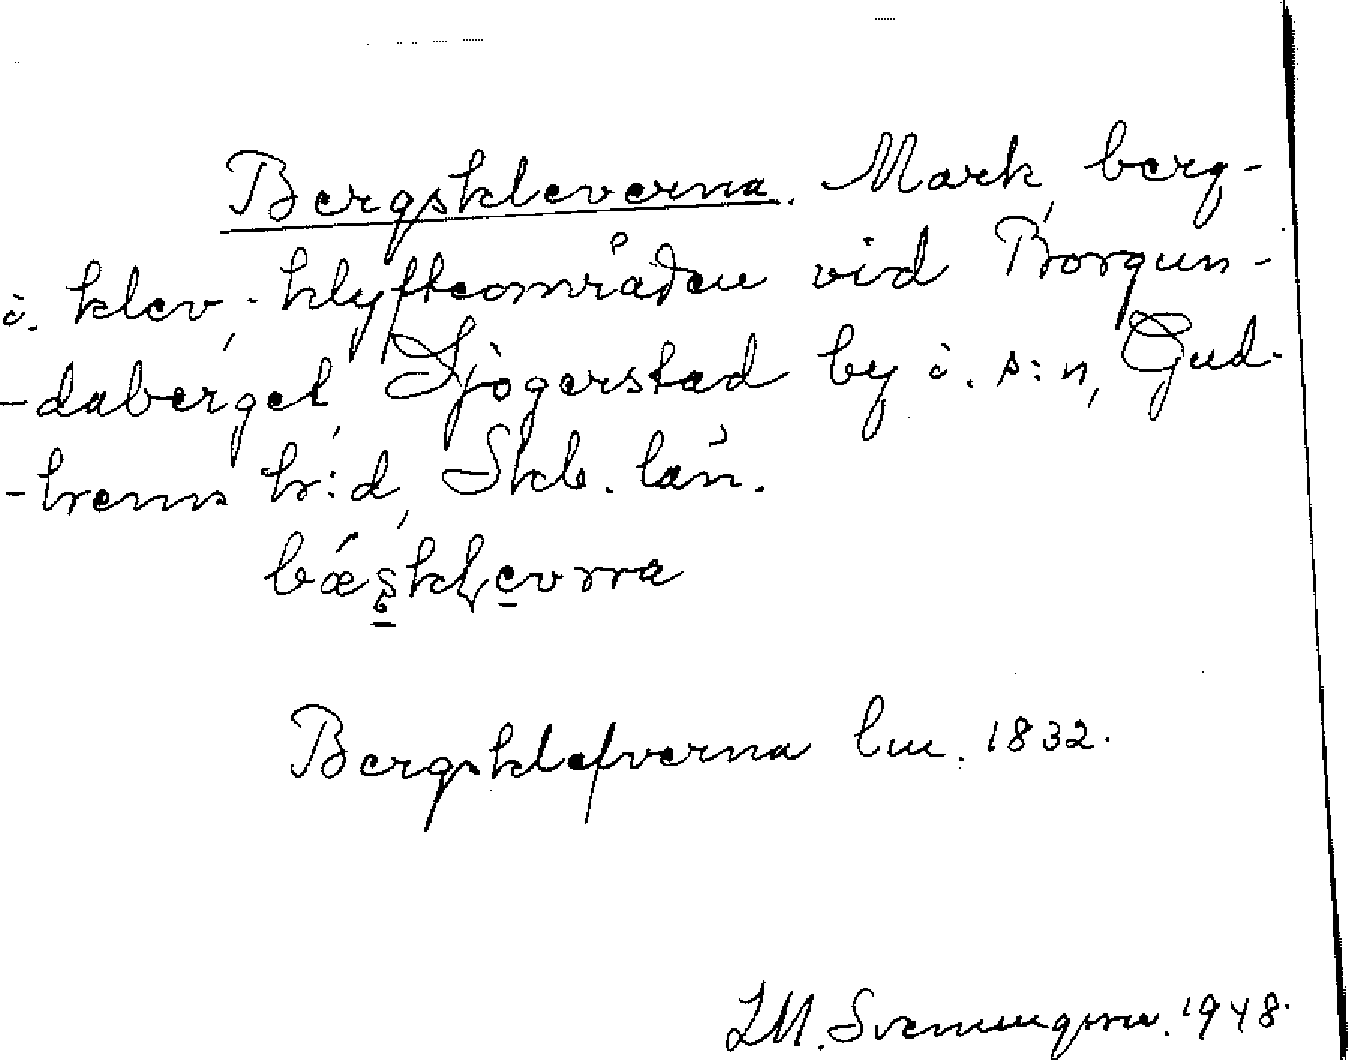 Bergskleverna. Mark, berg-
o. klev-, klyftområden vid Borgun-
-daberget, Sjögerstad by o. s:n, Gud-
-hems h:d, Skb. län.
bæ̀sklevrra
Bergsklefverna lm. 1832.
LM. Svenungsson. 1948.